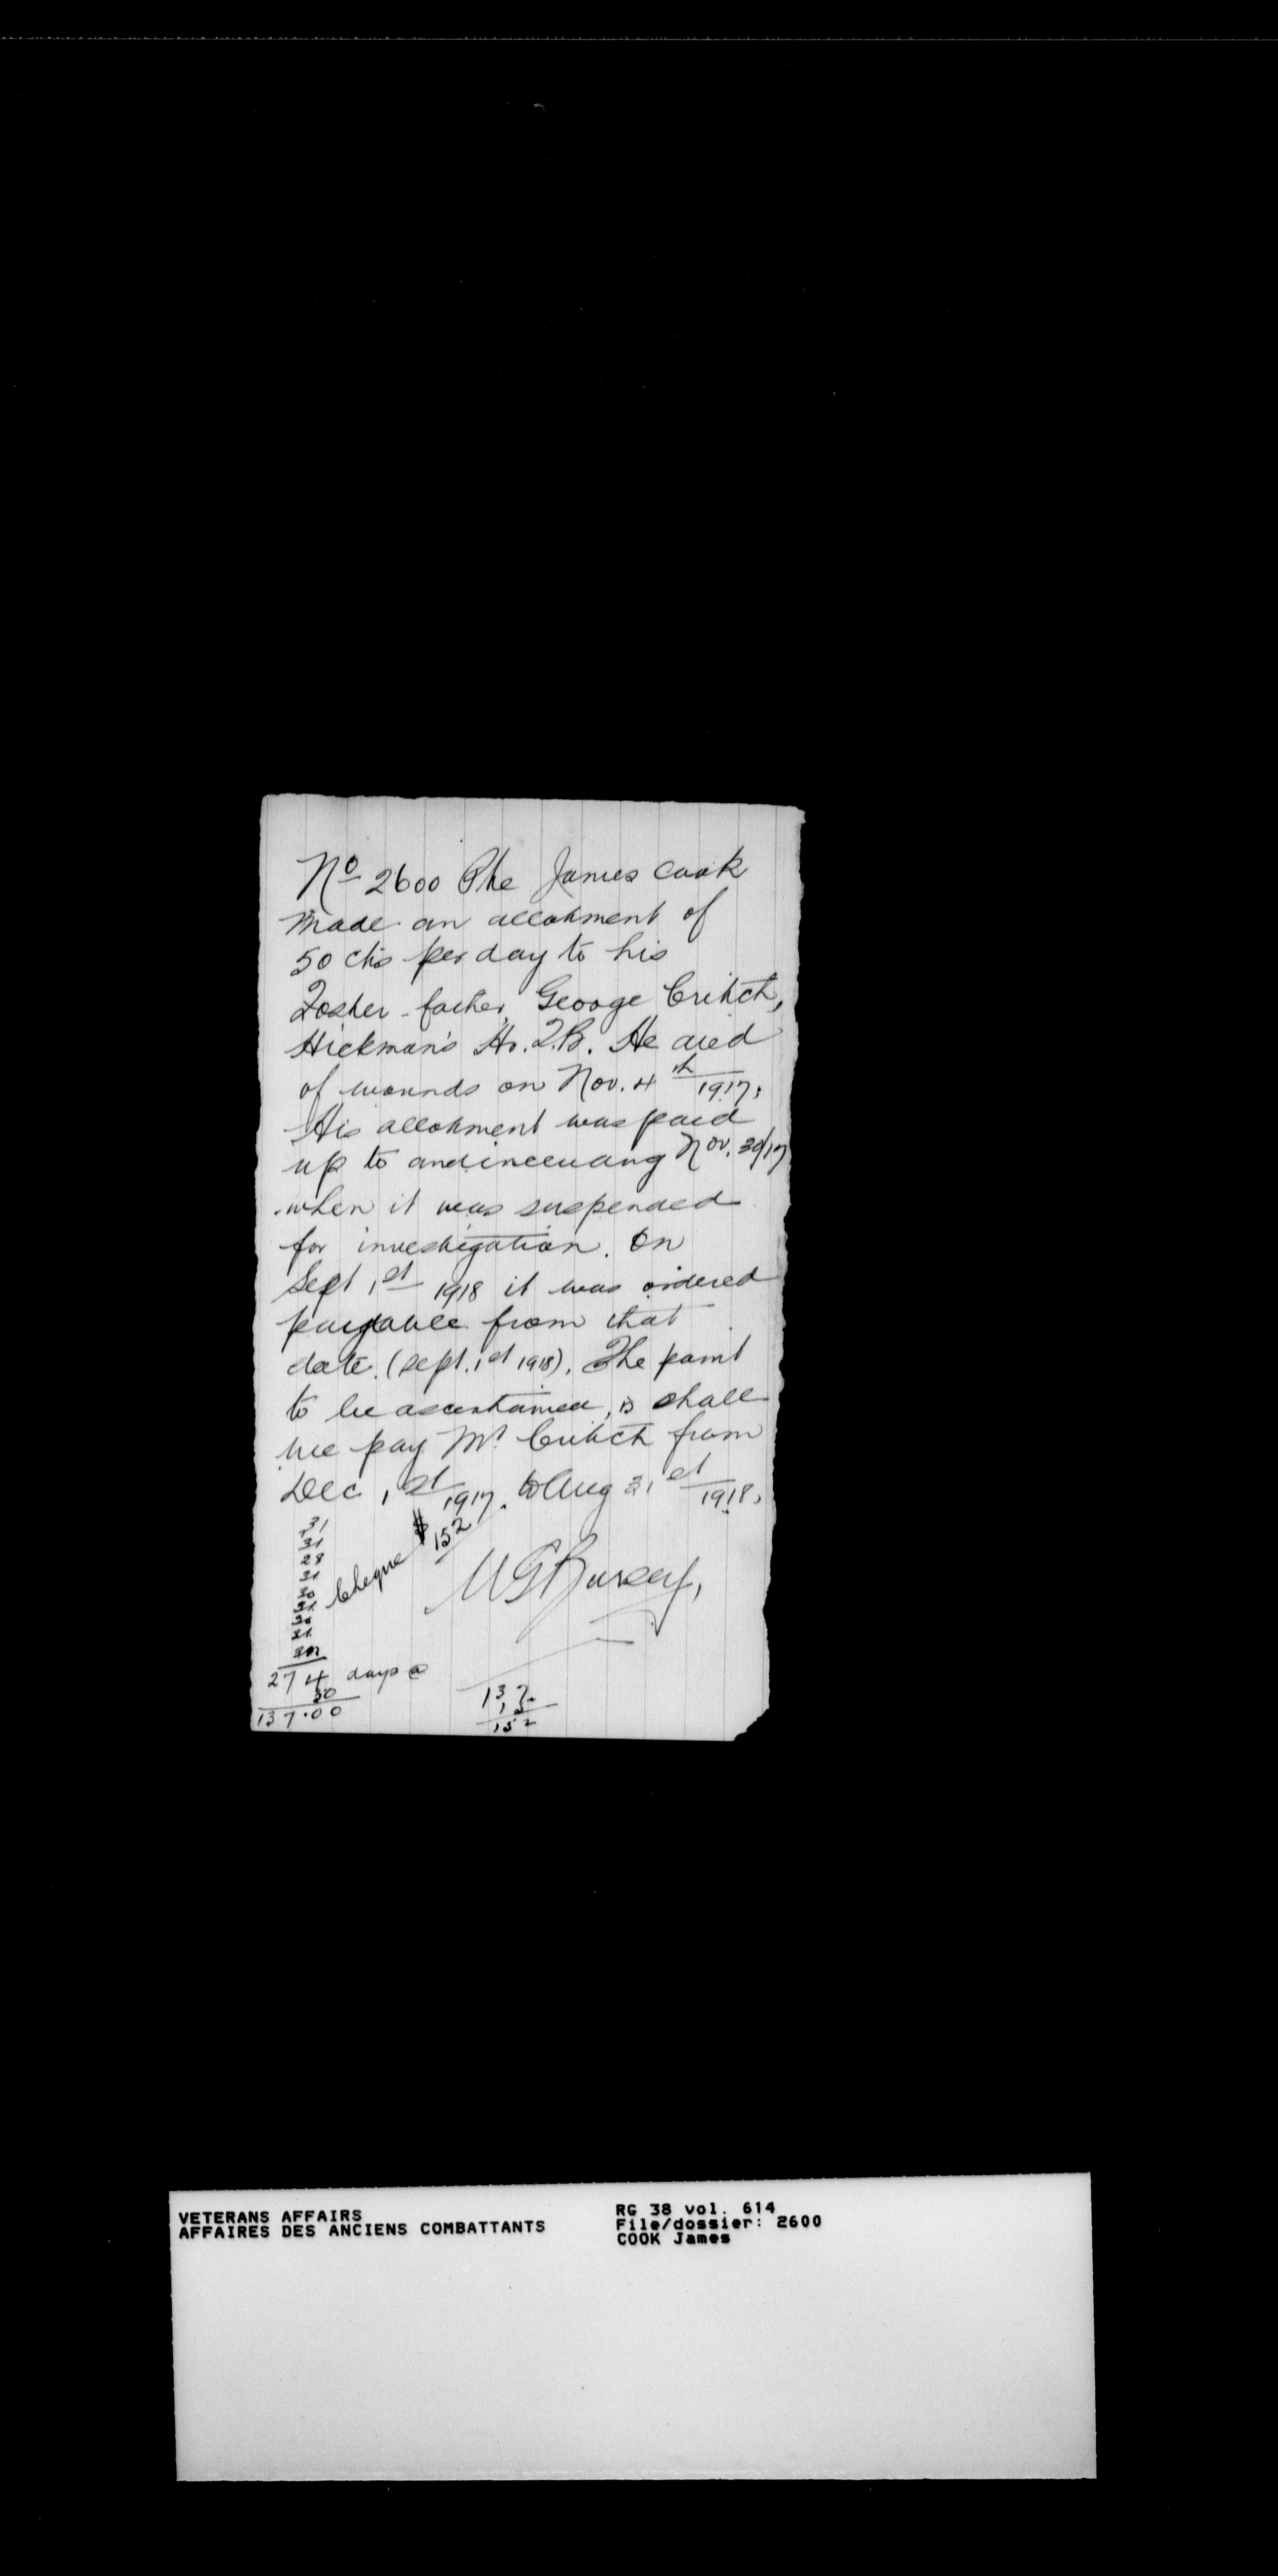 No 2600 Pte James Cook
made an allotment of
50 cts per day to his
Foster-father, George Critch,
Hickman's Hr. T.B. He died
of wounds on Nov. 4th 1917.
His allotment was paid
up to and including Nov. 30/17
when it was suspended
for investigation. On
Sept 1st 1918 it was ordered
payable from that
date. (Sept. 1st 1918). The point
to be ascertained, is shall
we pay Mr Critch from
Dec 1st 1917. to Aug 31st 1918.
31
31
28
31
30
31
30
31
Cheque $152
WGBursey,
274 days @
50
137.00
137.
15
152
VETERANS AFFAIRS
AFFAIRES DES ANCIENS COMBATTANTS
RG 38 vol. 614
File/dossier: 2600
COOK James